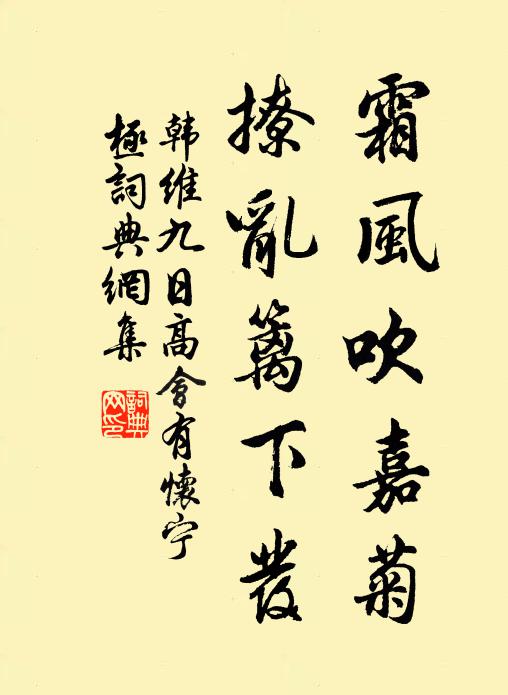 霜風吹嘉菊
撩亂篱下發
韩維九日高會有懷宁
極詞典網集
詞典
网印